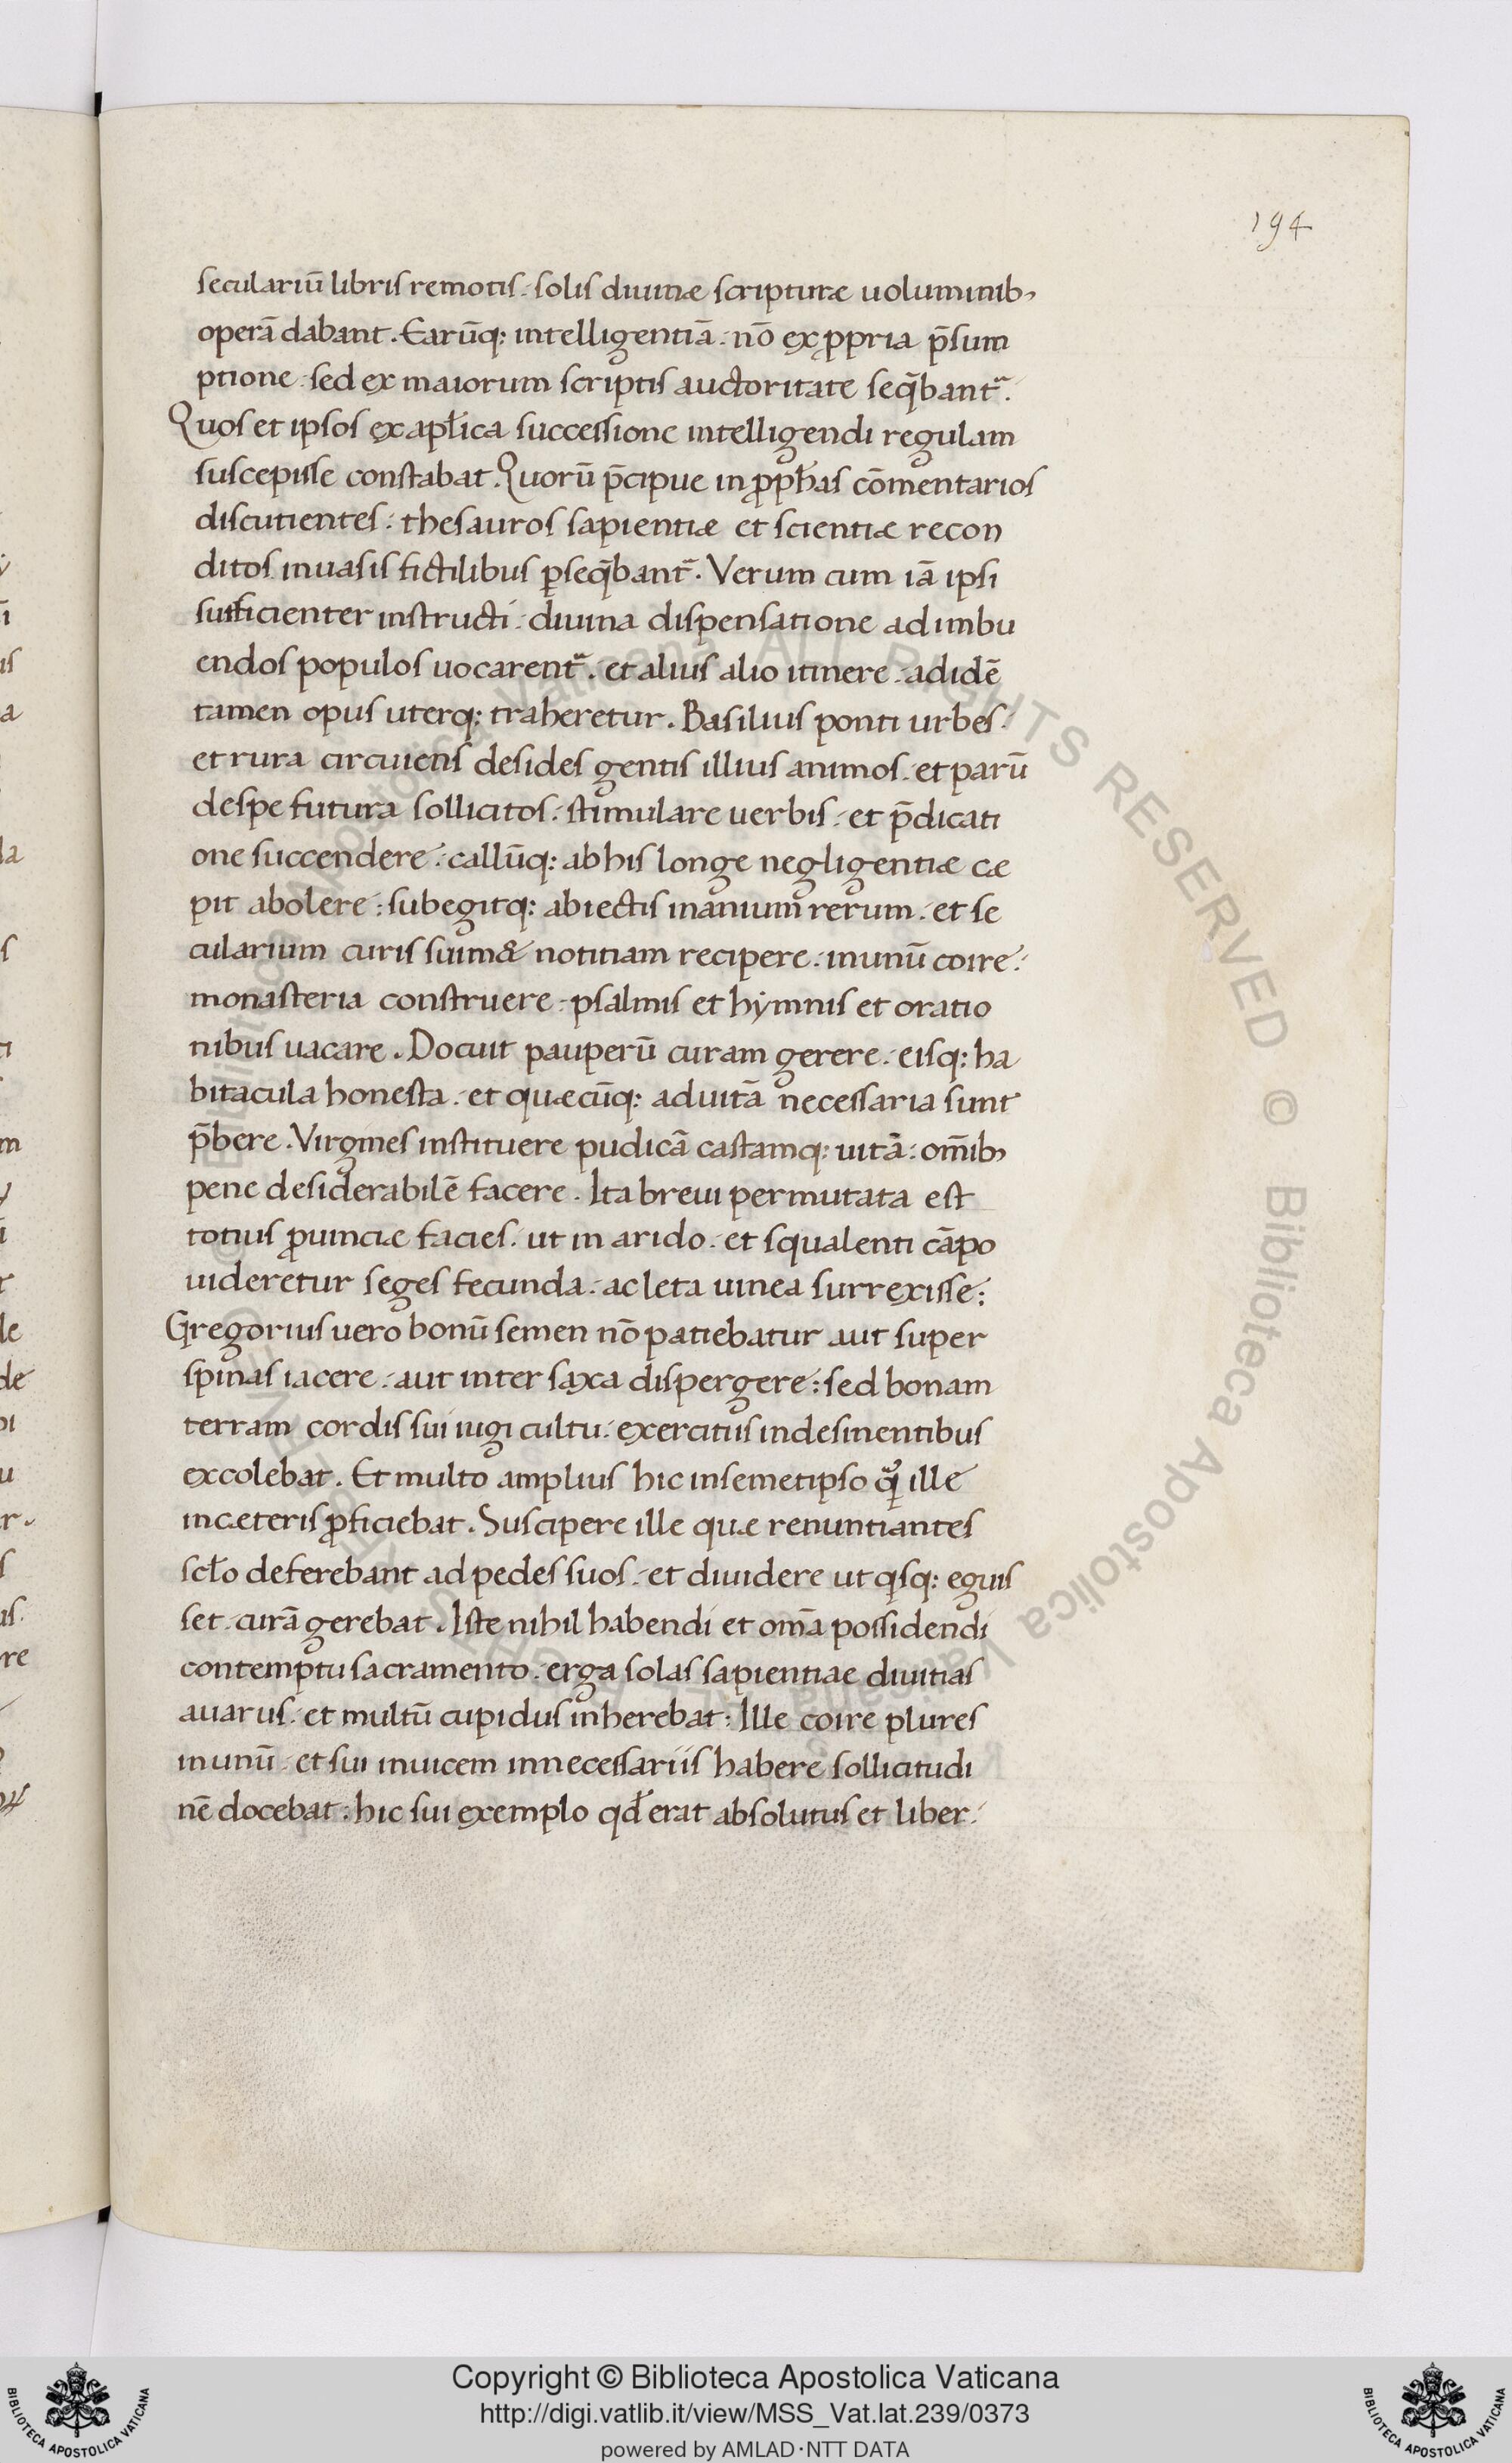 194
seculariū libris remotis. solis diuinæ scripturæ uoluminib;
operā dabant. Earūq; intelligentiā. nō ex ꝓpria p̄sum
ptione. sed ex maiorum scriptis auctoritate seq̄bantᷣ.
Quos et ipsos ex apłica successione intelligendi regulam
suscepisse constabat. Quorū p̄cipue in ꝓpħas cōmentarios
discutientes. thesauros sapientiæ et scientiæ recon
ditos in uasis fictilibus ꝑseq̄bantᷣ. Verum cum iā ipsi
sufficienter instructi. diuina dispensatione ad imbu
endos populos uocarentᷣ. et alius alio itinere. ad idē
tamen opus uterq; traheretur. Basilius ponti urbes.
et rura circuiens desides gentis illius animos. et parū
de spe futura sollicitos. stimulare uerbis. et p̄dicati
one succendere. callūq; ab his longe negligentiæ cæ
pit abolere. subegitq; abiectis inanium rerum. et se
cularium curis suim& notitiam recipere. in unū coire.
monasteria construere. psalmis et hymnis et oratio
nibus uacare. Docuit pauperū curam gerere. eisq; ha
bitacula honesta. et quæcūq; ad uitā necessaria sunt
p̄bere. Virgines instituere pudicā castamq; uitā. om̄ib;
pene desiderabilē facere. Ita breui permutata est
totius ꝓuinciæ facies. ut in arido. et squalenti cāpo
uideretur seges fecunda. ac leta uinea surrexisse;
Gregorius uero bonū semen nō patiebatur aut super
spinas iacere. aut inter saxa dispergere. sed bonam
terram cordis sui iugi cultu. exercitiis indesinentibus
excolebat. Et multo amplius hic in semetipso q̃ ille
in cæteris ꝓficiebat. Suscipere ille quæ renuntiantes
scło deferebant ad pedes suos. et diuidere ut qisq; eguis
set. curā gerebat. Iste nihil habendi et om̄a possidendi
contemptu sacramento. erga solas sapientiae diuitias
auarus. et multū cupidus inherebat: Ille coire plures
in unū. et sui inuicem in necessariis habere sollicitudi
nē docebat: hic sui exemplo qđ erat absolutus et liber.
Copyright © Biblioteca Apostolica Vaticana
http://digi.vatlib.it/view/MSS_Vat.lat.239/0373
powered by AMLAD·NTT DATA